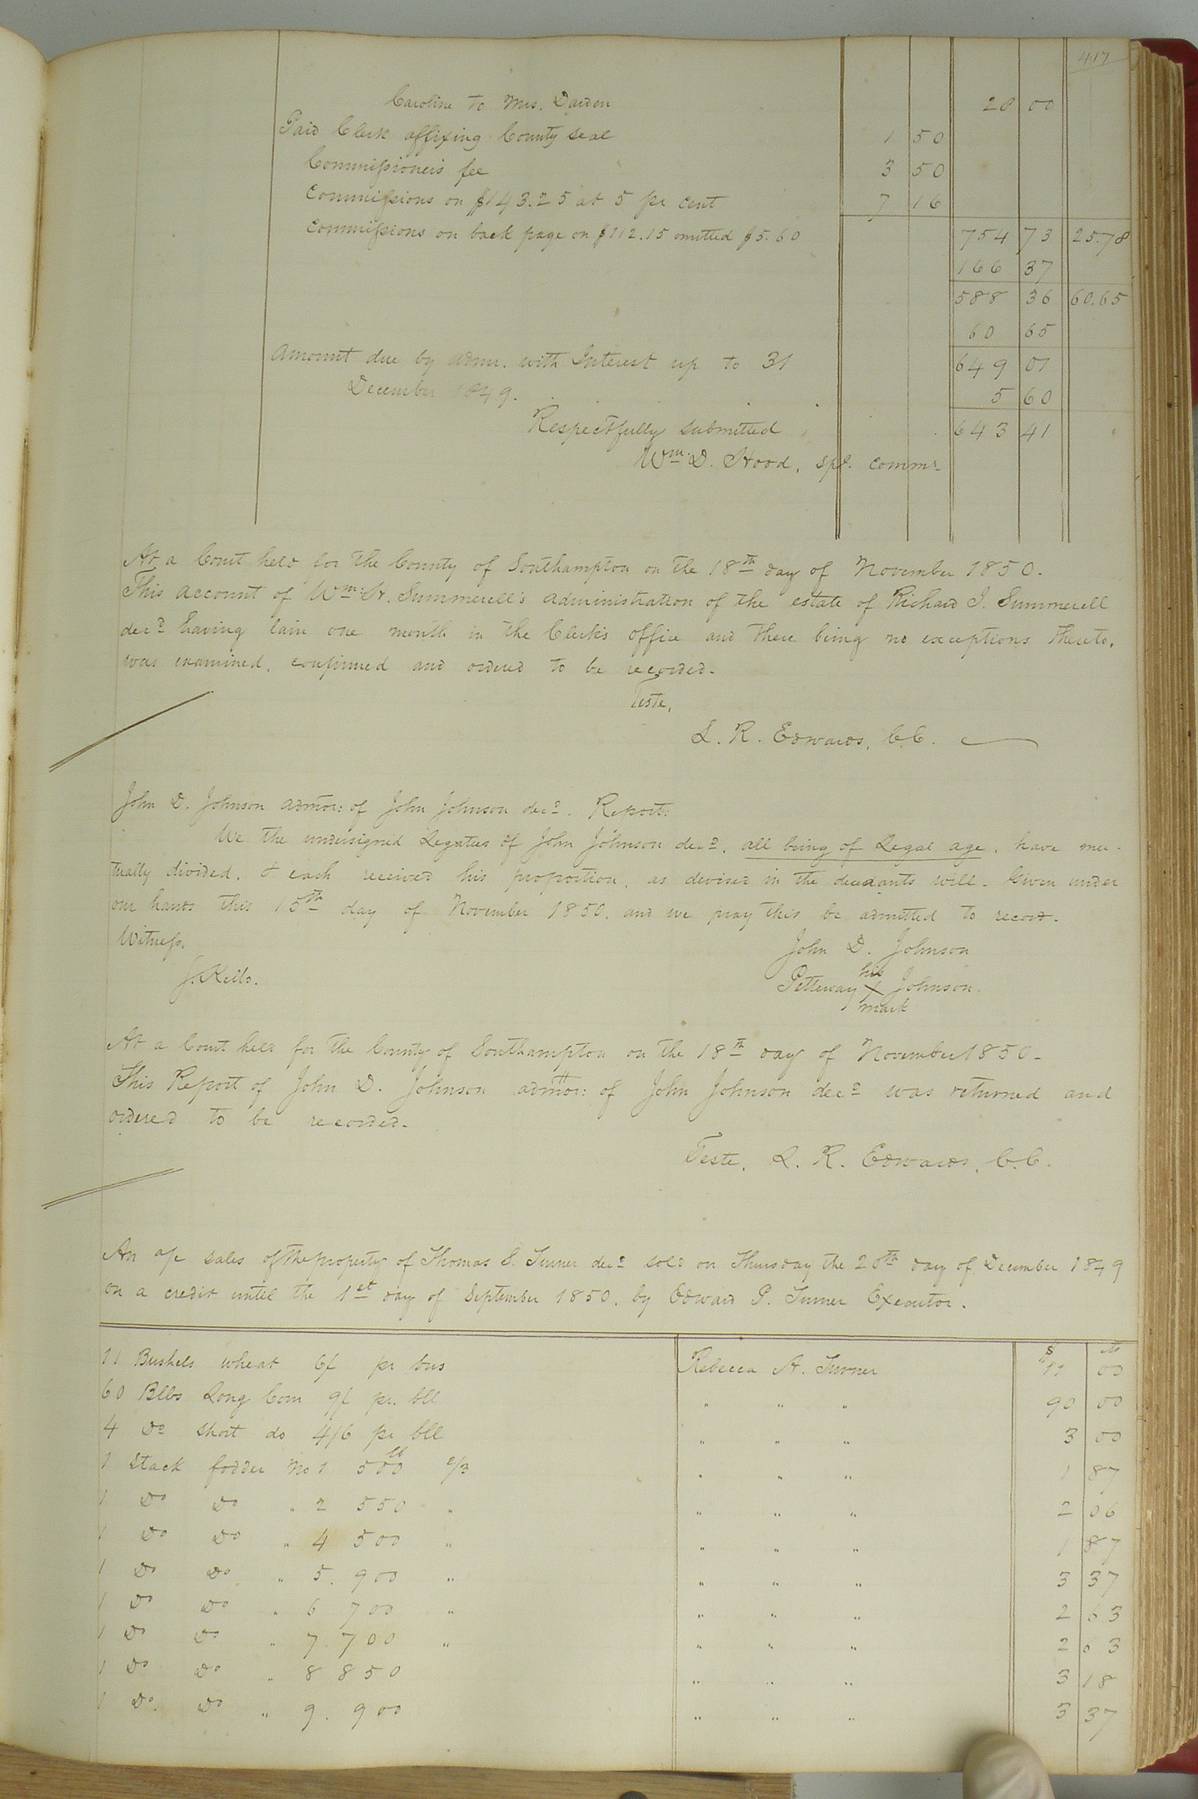 417
Caroline to Mrs. Darden 28 00
Paid Clerk affixing County seal 1 50
Commissioner's fee 3 50
Commissions on $143.25 at 5 pr cent 7 16
Commissions on back page on $112.15 omitted $5.60 754 73 25.78
166 37
588 36 60.65
60 65
Amount due by admr. with Interest up to 31 649 01
December 1849. 5 60
Respectfully submitted 643 41
Wm. D. Hood, spl. commr.
At a Court held for the County of Southampton on the 18th day of November 1850.
This account of Wm. H. Summerell's administration of the estate of Richard J. Summerell
decd having lain one month in the Clerk's office and there being no exceptions thereto,
was examined, confirmed and ordered to be recorded.
Teste,
L. R. Edwards, C.C.
John D. Johnson admor: of John Johnson decd. Report:
We the undersigned Legatees of John Johnson decd, all being of Legal age, have mu-
tually divided, & each received his proportion, as devised in the decedants will. Given under
our hands this 15th day of November 1850, and we pray this be admitted to record.
Witness, John D. Johnson
J. Kello. Petteway his X mark Johnson.
At a Court held for the County of Southampton on the 18th day of November 1850-
This Report of John D. Johnson admor: of John Johnson decd was returned and
ordered to be recorded.
Teste, L. R. Edwards, C.C.
An a/c sales of the property of Thomas S. Turner decd sold on Thursday the 20th day of December 1849
on a credit until the 1st day of September 1850, by Edward P. Turner Executor.
$ cts
11 Bushels wheat 6/ pr bus Rebecca A. Turner 11 00
60 Blls Long Corn 9/ pr. bll " " " 90 00
4 Do short do 4/6 pr bll " " " 3 00
1 Stack fodder No 1 500 lb 2/3 " " " 1 87
1 Do Do " 2 550 " " " " 2 06
1 Do Do " 4 500 " " " " 1 87
1 Do Do " 5. 900 " " " " 3 37
1 Do Do " 6 700 " " " " 2 63
1 Do Do " 7. 700 " " " " 2 63
1 Do Do " 8 850 " " " 3 18
1 Do. Do " 9. 900 " " " 3 37